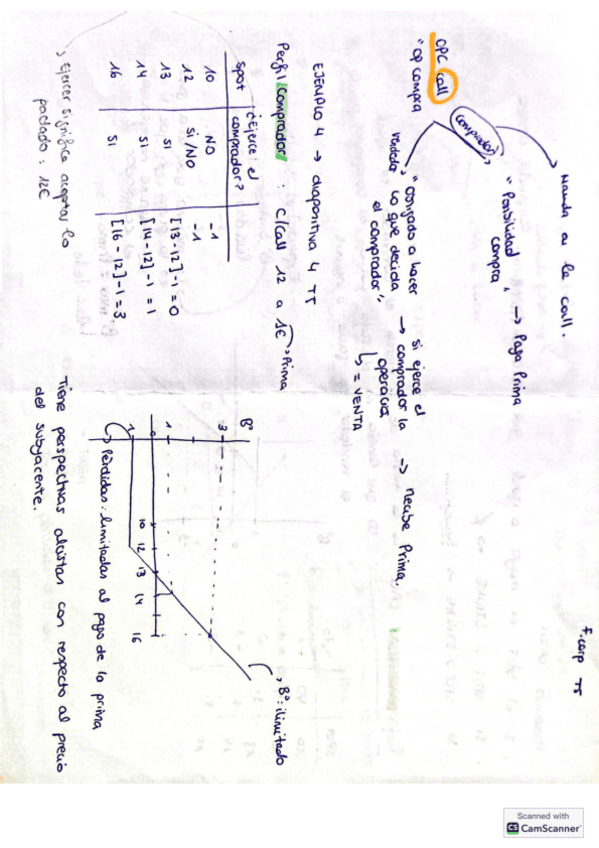 F. corp T5
Manda a la call.
OPC call
"op compra"
comprador
"Posibilidad compra" → Paga Prima
vendedor
"obligado a hacer lo que decida el comprador"
→ si ejerce el comprador la operación
↳ = VENTA
→ recibe Prima.
EJEMPLO 4 → diapositiva 4 T5
Perfil Comprador : C/Call 12 a 1€ → Prima
Spot | ¿Ejerce el comprador? |
10 | NO | -1
12 | Si/NO | -1
13 | Si | [13-12]-1=0
14 | Si | [14-12]-1=1
16 | Si | [16-12]-1=3
↳ Ejercer significa aceptar lo pactado: 12€
Bº
3
1
0
1
10 12 13 14 16
↳ Bº: ilimitado
↳ Pérdidas: limitadas al pago de la prima
Tiene perspectivas alcistas con respecto al precio
del subyacente.
Scanned with
CS CamScanner